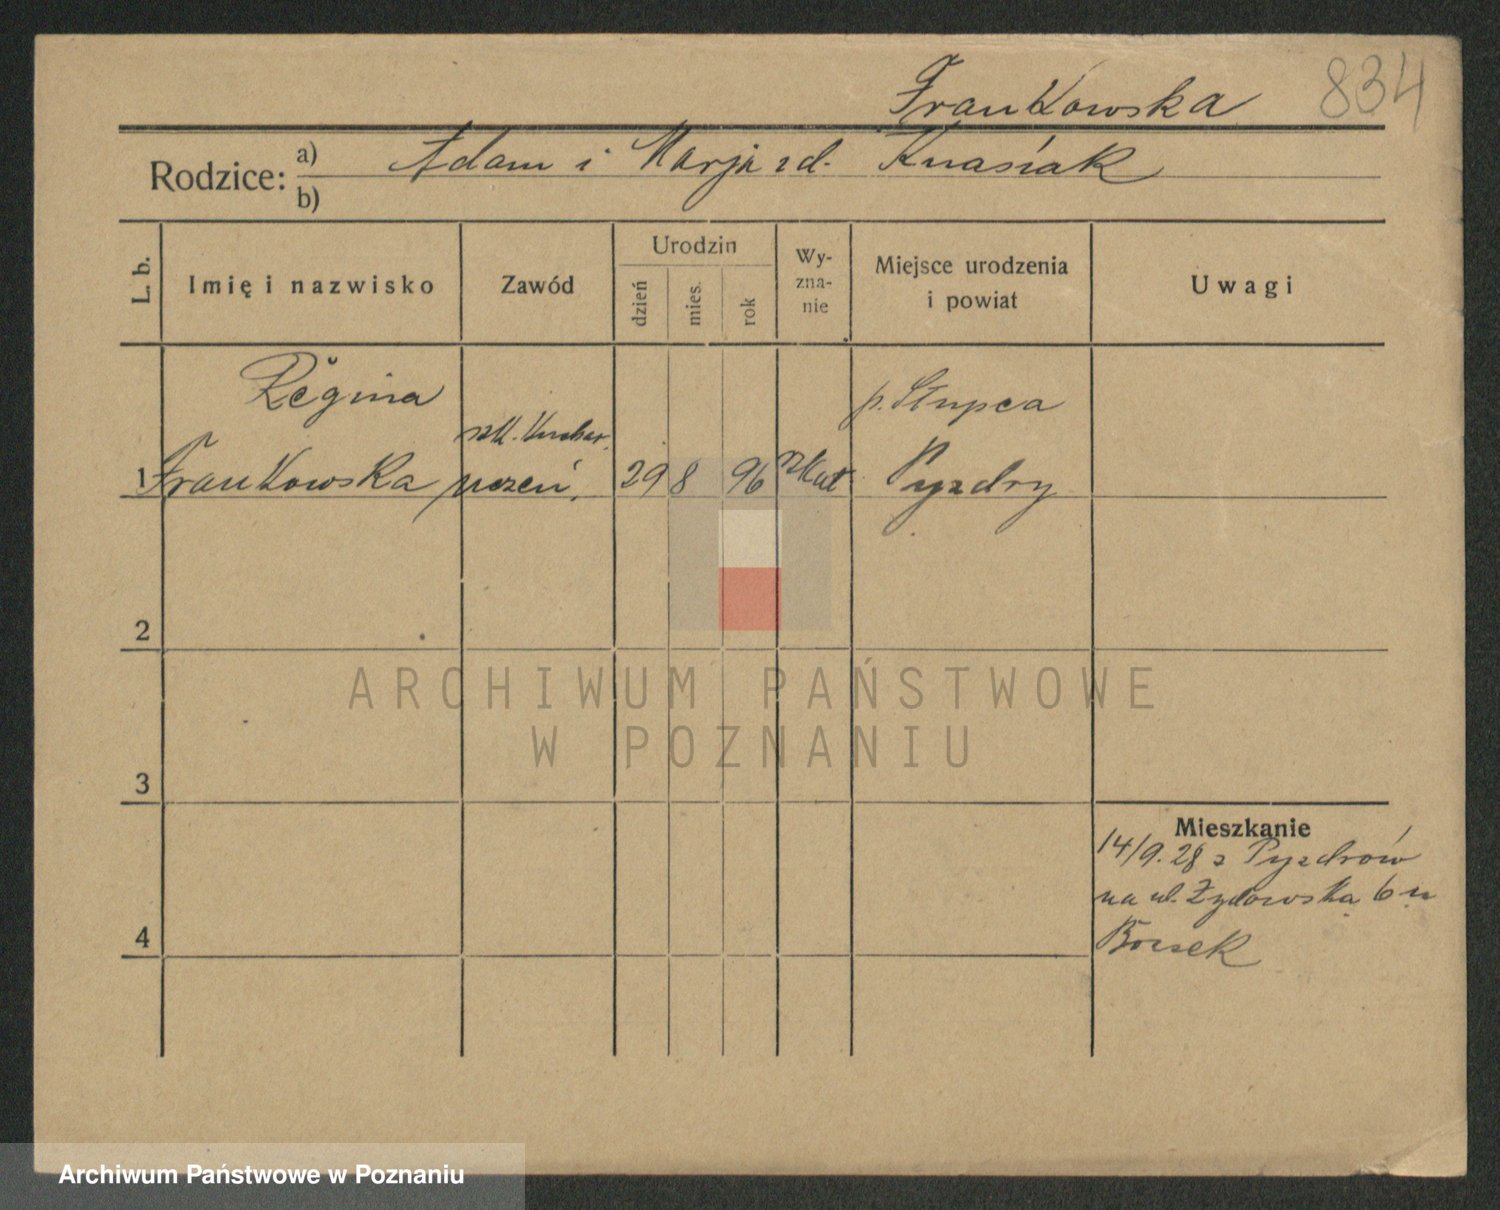 Frankowska 834
Rodzice: a) Adam i Marja zd. Knasiak
b)
L. b. Imię i nazwisko Zawód Urodzin dzień mies. rok Wy-zna-nie Miejsce urodzenia i powiat Uwagi
Regina p. Słupca
szk. Kuchar.
1 Frankowska uczeń. 29 8 96 rzkat Pyzdry
2
ARCHIWUM PAŃSTWOWE
W POZNANIU
3
Mieszkanie
14/9. 28 z Pyzdrów
na ul. Żydowska 6 u
4
Archiwum Państwowe w Poznaniu